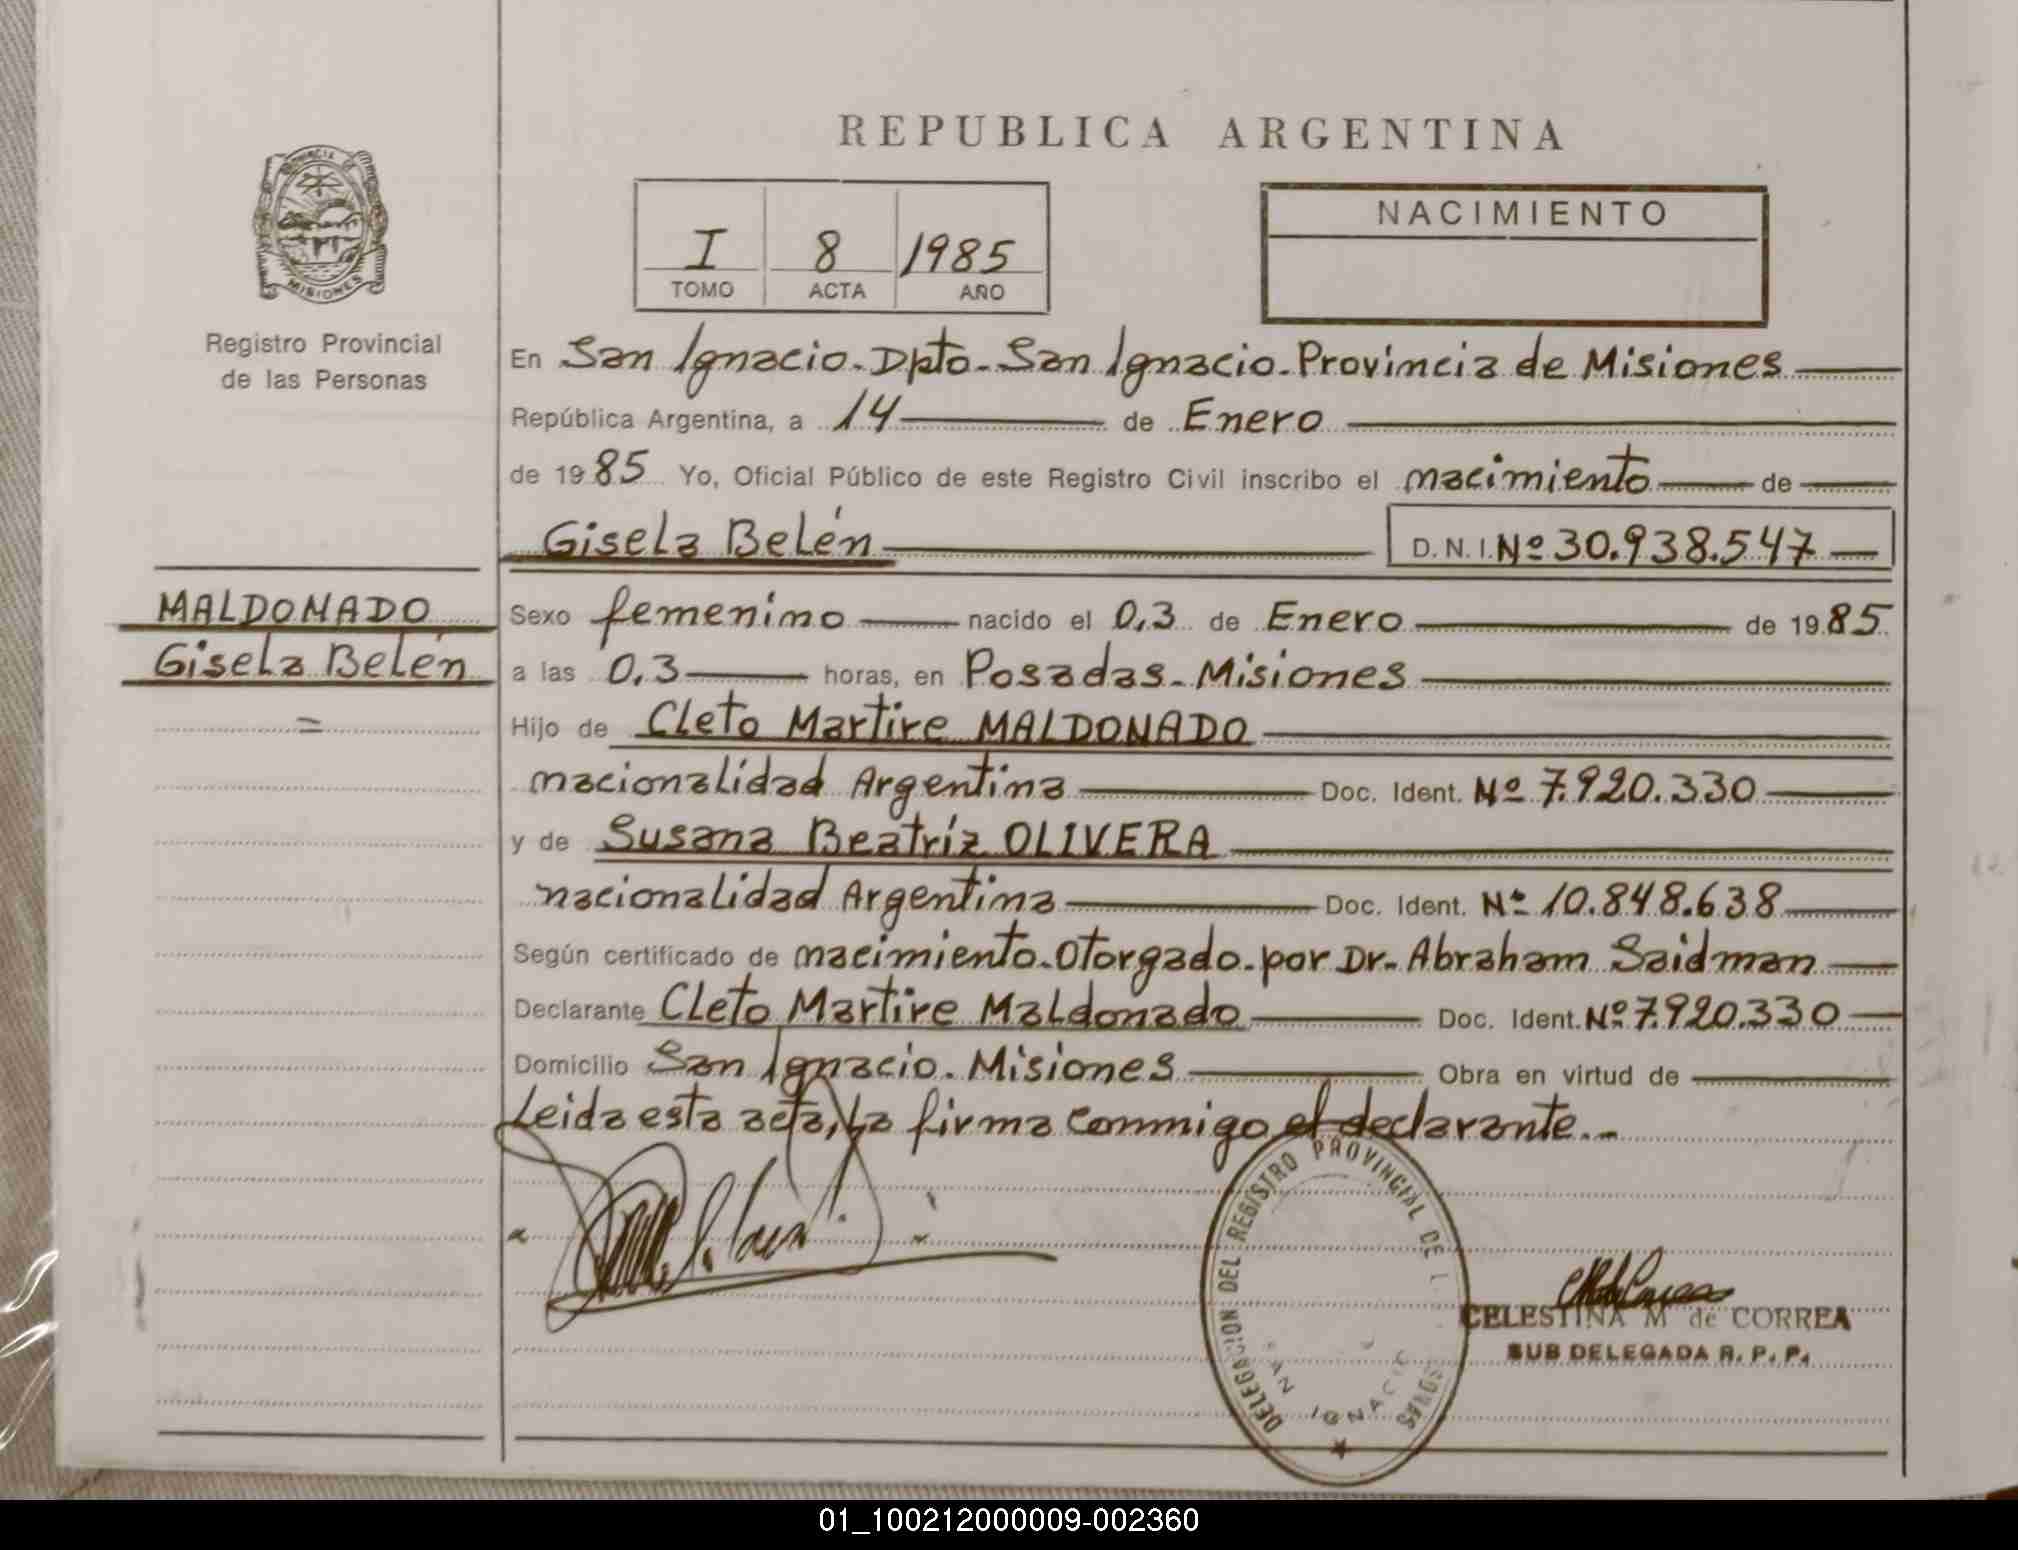 REPUBLICA ARGENTINA
PROVINCIA DE
MISIONES
Registro Provincial
de las Personas
I 8 1985
TOMO ACTA AÑO
NACIMIENTO
En San Ignacio. Dpto. San Ignacio. Provincia de Misiones
República Argentina, a 14 de Enero
de 1985 Yo, Oficial Público de este Registro Civil inscribo el nacimiento de
Gisela Belén D.N.I. Nº 30.938.547
MALDONADO
Gisela Belén
=
Sexo femenino nacido el 0,3 de Enero de 1985
a las 0,3 horas, en Posadas. Misiones
Hijo de Cleto Martire MALDONADO
nacionalidad Argentina Doc. Ident. Nº 7.920.330
y de Susana Beatriz OLIVERA
nacionalidad Argentina Doc. Ident. Nº 10.848.638
Según certificado de nacimiento. Otorgado. por Dr. Abraham Saidman
Declarante Cleto Martire Maldonado Doc. Ident. Nº 7.920.330
Domicilio San Ignacio. Misiones Obra en virtud de
Leida esta acta, La firma conmigo el declarante.-
DELEGACION DEL REGISTRO PROVINCIAL DE
SAN IGNACIO
CELESTINA M de CORREA
SUB DELEGADA R. P. P.
01_100212000009-002360